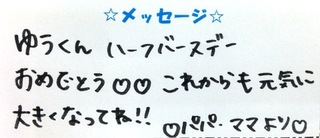 ☆メッセージ☆
ゆうくん ハーフバースデー
おめでとう♡♡ これからも元気に
大きくなってね!! ♡パパ・ママより♡